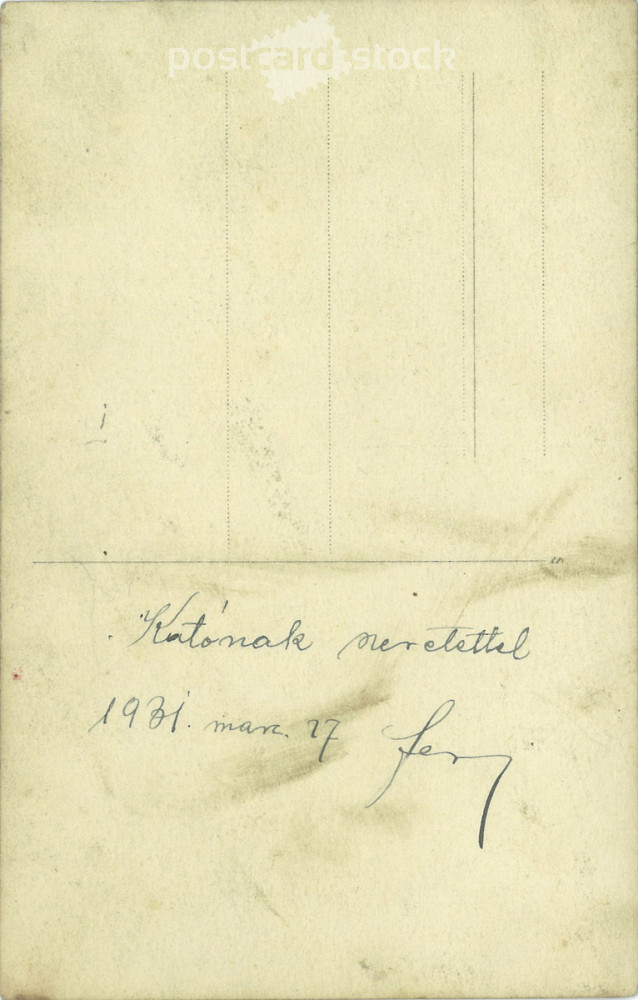 postcard.stock
Katónak szeretettel
1931. marc. 27
Fery